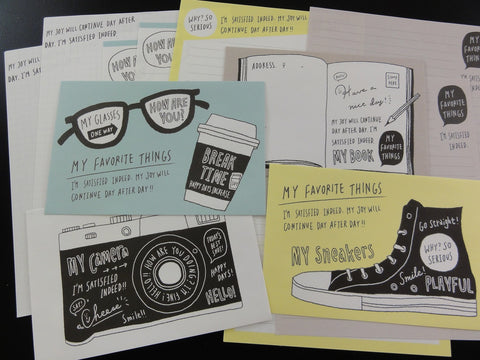 MY JOY WILL CONTINUE DAY AFTER
DAY. I'M SATISFIED INDEED.
MY JOY WILL CONTINUE DAY AFTER
DAY. I'M SATISFIED
HOW ARE
YOU?
HOW ARE
YOU?
WHY? SO
SERIOUS
I'M SATISFIED INDEED. MY JOY WILL
CONTINUE DAY AFTER DAY!!
MY
FAVORITE
THINGS
MY
FAVORITE
THINGS
ADDRESS.
Have a
nice day!
MY JOY WILL CONTINUE
DAY AFTER DAY. I'M
SATISFIED INDEED.
MY BOOK
MY
FAVORITE
THINGS
MY GLASSES
ONE WAY
HOW ARE
YOU?
MY FAVORITE THINGS
I'M SATISFIED INDEED. MY JOY WILL
CONTINUE DAY AFTER DAY!!
BREAK
TIME
HAPPY DAYS INCREASE
MY FAVORITE THINGS
I'M SATISFIED INDEED. MY JOY WILL
CONTINUE DAY AFTER DAY!!
MY Sneakers
GO Straight!
WHY? SO
SERIOUS
Smile!
PLAYFUL
MY CAMERA
I'M SATISFIED
INDEED!!
SAY!
Cheese
Smile!!
HOW ARE YOU DOING? I'M FINE! HELLO!!
TODAY'S
BEST
SHOT!
HAPPY
DAYS!
HELLO!